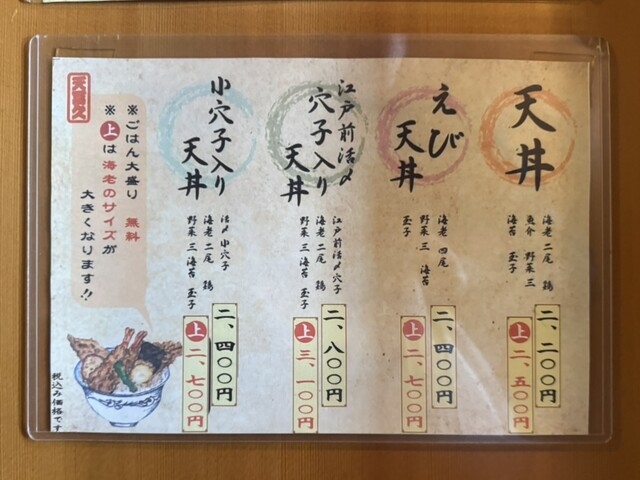 天丼
海老 二尾 鶏
魚介 野菜 三
海苔 玉子
二、二〇〇円
上 二、五〇〇円
えび
天丼
海老 四尾
野菜 三 海苔
玉子
二、四〇〇円
上 二、七〇〇円
江戸前活〆
穴子入り
天丼
江戸前活〆穴子
海老 二尾 鶏
野菜 三 海苔 玉子
二、八〇〇円
上 三、一〇〇円
小穴子入り
天丼
活〆 小穴子
海老 二尾 鶏
野菜 三 海苔 玉子
二、四〇〇円
上 二、七〇〇円
※ごはん大盛り 無料
※上は海老のサイズが
大きくなります!!
税込み価格です